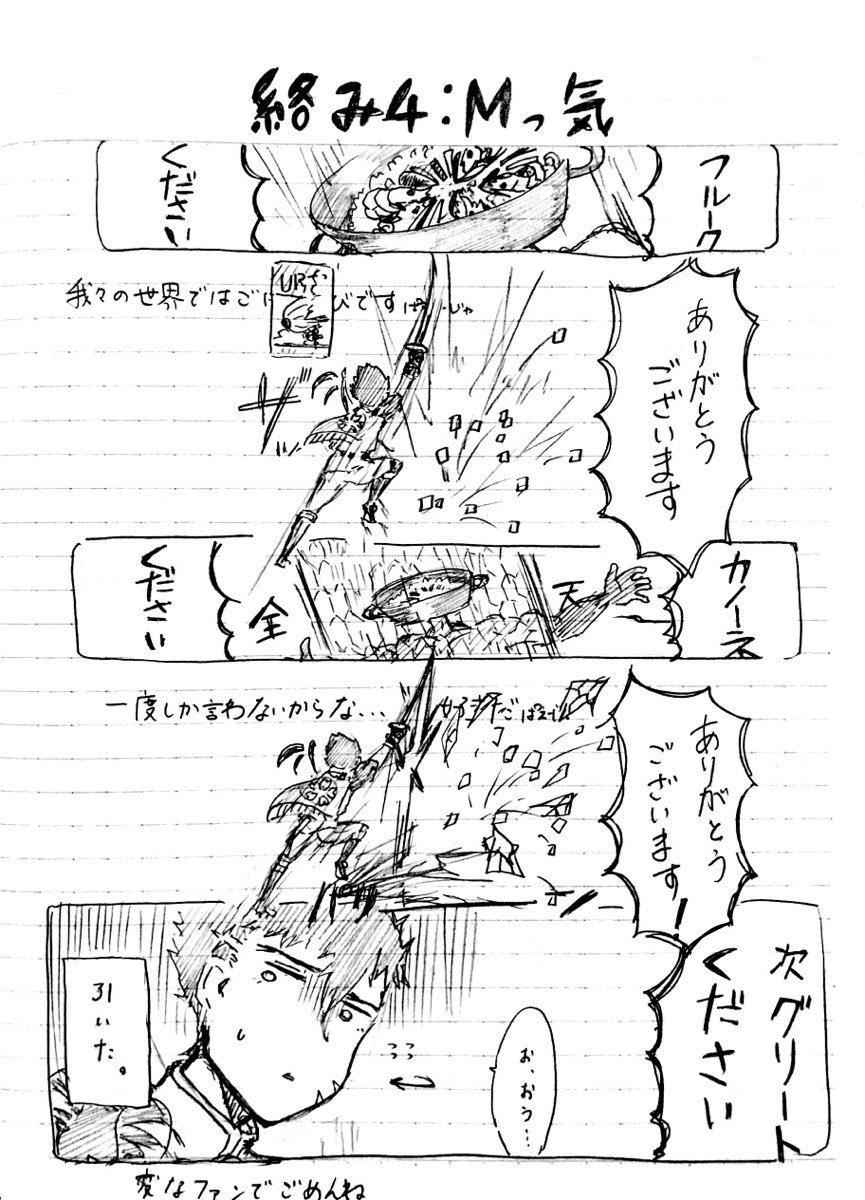 絡み4:Mっ気
フルーク
ください
我々の世界ではご
びです
UR
ありがとう
ございます
ザッ
カノーネ
ください
天
全
一度しか言わないからな...
ありがとう
ございます!
次グリート
ください
お、おう…
引いた。
変なファンでごめんね